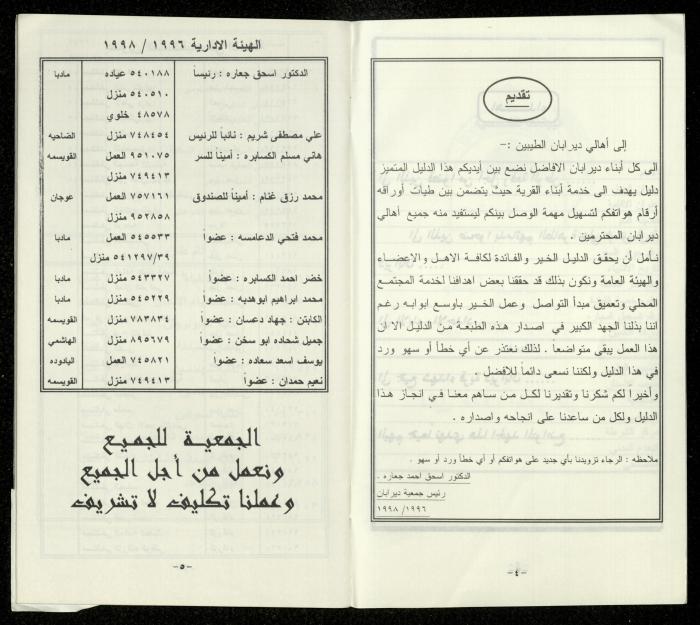 تقديم
إلى أهالي ديرابان الطيبين :-
الى كل أبناء ديرابان الافاضل نضع بين أيديكم هذا الدليل المتميز
دليل يهدف الى خدمة أبناء القرية حيث يتضمن بين طيات أوراقه
أرقام هواتفكم لتسهيل مهمة الوصل بينكم ليستفيد منه جميع أهالي
ديرابان المحترمين .
نـأمل أن يحقق الدليل الخير والفائدة لكافة الاهل والاعضاء
والهيئة العامة ونكون بذلك قد حققنا بعض اهدافنا لخدمة المجتمع
المحلي وتعميق مبدأ التواصل وعمل الخير بأوسع ابوابه رغم
اننا بذلنا الجهد الكبير في اصدار هذه الطبعة من الدليل الا ان
هذا العمل يبقى متواضعاً . لذلك نعتذر عن أي خطأ أو سهو ورد
في هذا الدليل ولكننا نسعى دائماً للافضل .
وأخيراً لكم شكرنا وتقديرنا لكل من ساهم معنا في انجاز هذا
الدليل ولكل من ساعدنا على انجاحه واصداره .
ملاحظه : الرجاء تزويدنا بأي جديد على هواتفكم أو أي خطأ ورد أو سهو .
الدكتور اسحق احمد جعاره .
رئيس جمعية ديرابان
١٩٩٦/ ١٩٩٨
-٤-
الهيئة الادارية ١٩٩٦ / ١٩٩٨
الدكتور اسحق جعاره : رئيساً ٥٤٠١٨٨ عياده مادبا
٥٤٠٥١٠ منزل
٤٨٥٧٨ خلوي
علي مصطفى شريم : نائباً للرئيس ٧٤٨٤٥٤ منزل الضاحيه
هاني مسلم الكسابره : أميناً للسر ٩٥١٠٧٥ العمل القويسمه
٧٤٩٤١٣ منزل
محمد رزق غنام : أميناً للصندوق ٧٥٧١٦١ العمل عوجان
٩٥٢٨٥٨ منزل
محمد فتحي الدعامسه : عضواً ٥٤٥٥٣٣ العمل مادبا
٥٤١٢٩٧/٣٩ منزل
خضر احمد الكسابره : عضواً ٥٤٣٣٢٧ منزل مادبا
محمد ابراهيم ابوهديه : عضواً ٥٤٥٢٢٩ منزل مادبا
الكابتن : جهاد دعسان : عضواً ٧٨٣٨٣٤ منزل القويسمه
جميل شحاده ابو سخن : عضواً ٨٩٥٦٧٩ منزل الهاشمي
يوسف اسعد سعاده : عضواً ٧٤٥٨٢١ العمل اليادوده
نعيم حمدان : عضواً ٧٤٩٤١٣ منزل القويسمه
الجمعية للجميع
ونعمل من أجل الجميع
وعملنا تكليف لا تشريف
-٥-